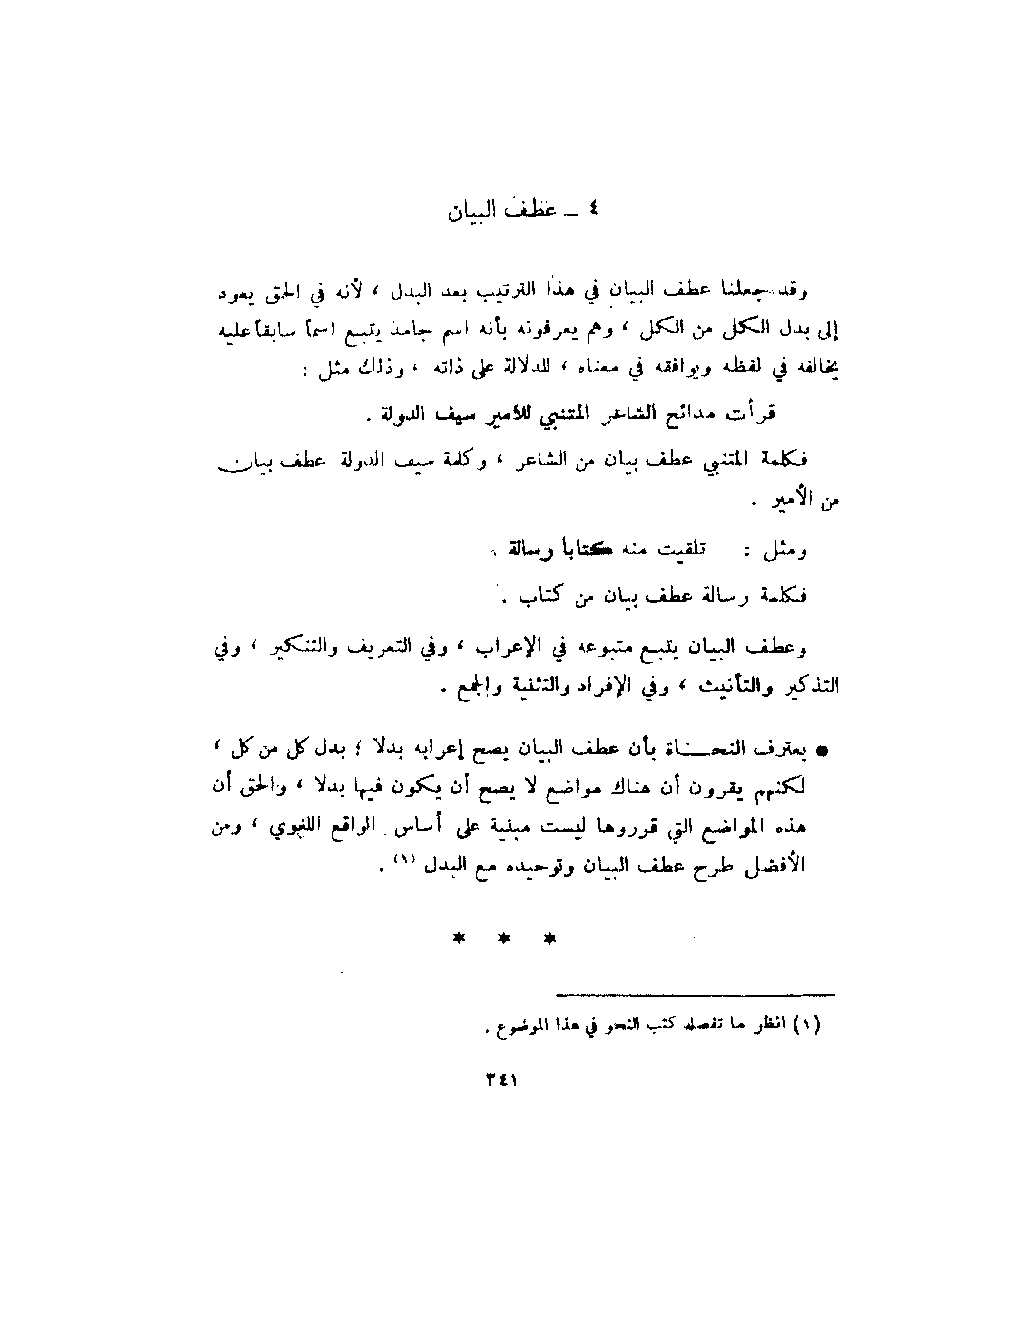 ٤ ــ عطف البيان
وقد جعلنا عطف البيان في هذا الترتيب بعد البدل ، لأنه في الحق يعود
إلى بدل الكل من الكل ، وهم يعرفونه بأنه اسم جامد يتبع اسماً سابقاً عليه
يخالفه في لفظه ويوافقه في معناه ، للدلالة على ذاته ، وذلك مثل :
قرأت مدائح الشاعر المتنبي للأمير سيف الدولة .
فكلمة المتنبي عطف بيان من الشاعر ، وكلمة سيف الدولة عطف بيان
من الأمير .
ومثل : تلقيت منه كتاباً رسالة .
فكلمة رسالة عطف بيان من كتاب .
وعطف البيان يتبع متبوعه في الإعراب ، وفي التعريف والتنكير ، وفي
التذكير والتأنيث ، وفي الإفراد والتثنية والجمع .
● يعترف النحاة بأن عطف البيان يصح إعرابه بدلا ؛ بدل كل من كل ،
لكنهم يقررون أن هناك مواضع لا يصح أن يكون فيها بدلا ، والحق أن
هذه المواضع التي قرروها ليست مبنية على أساس الواقع اللغوي ، ومن
الأفضل طرح عطف البيان وتوحيده مع البدل (١) .
* * *
(١) انظر ما تفصله كتب النحو في هذا الموضوع .
٣٤١